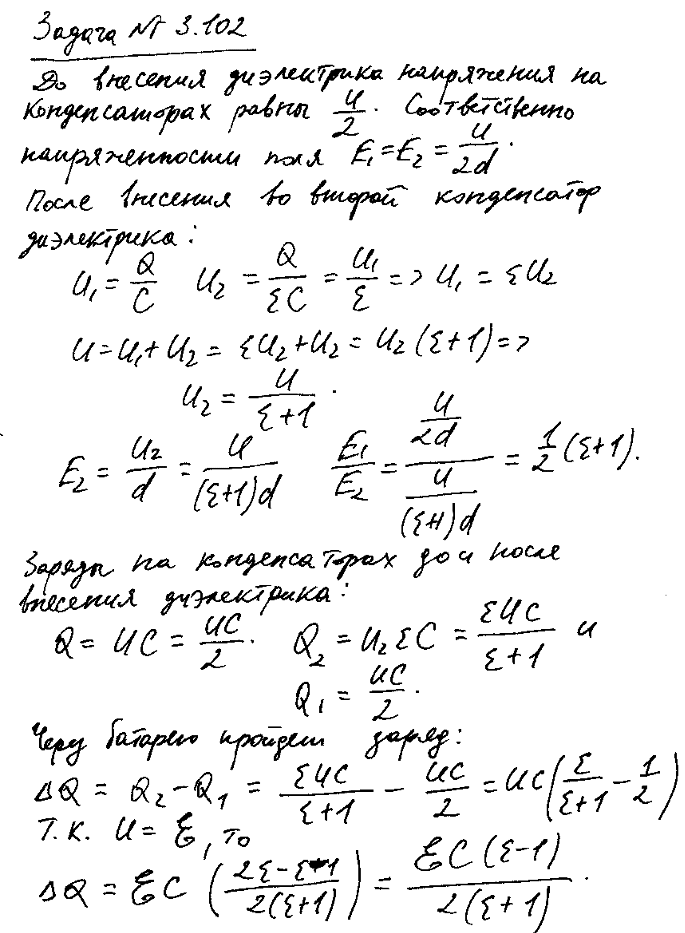 Задача № 3.102
До внесения диэлектрика напряжения на
конденсаторах равны U/2. Соответственно
напряженности поля E₁=E₂=U/2d.
После внесения во второй конденсатор
диэлектрика:
U₁=Q/C U₂=Q/(εC)=U₁/ε => U₁=εU₂
U=U₁+U₂=εU₂+U₂=U₂(ε+1)=>
U₂=U/(ε+1).
E₂=U₂/d=U/((ε+1)d) E₁/E₂=(U/2d)/(U/((ε+1)d))=1/2(ε+1).
Заряды на конденсаторах до и после
внесения диэлектрика:
Q=UC=UC/2. Q₂=U₂εC=εUC/(ε+1) и
Q₁=UC/2.
Через батарею пройдет заряд:
ΔQ=Q₂-Q₁=εUC/(ε+1)-UC/2=UC(ε/(ε+1)-1/2)
Т.к. U=ℰ, то
ΔQ=ℰC((2ε-ε-1)/(2(ε+1)))=ℰC(ε-1)/(2(ε+1)).